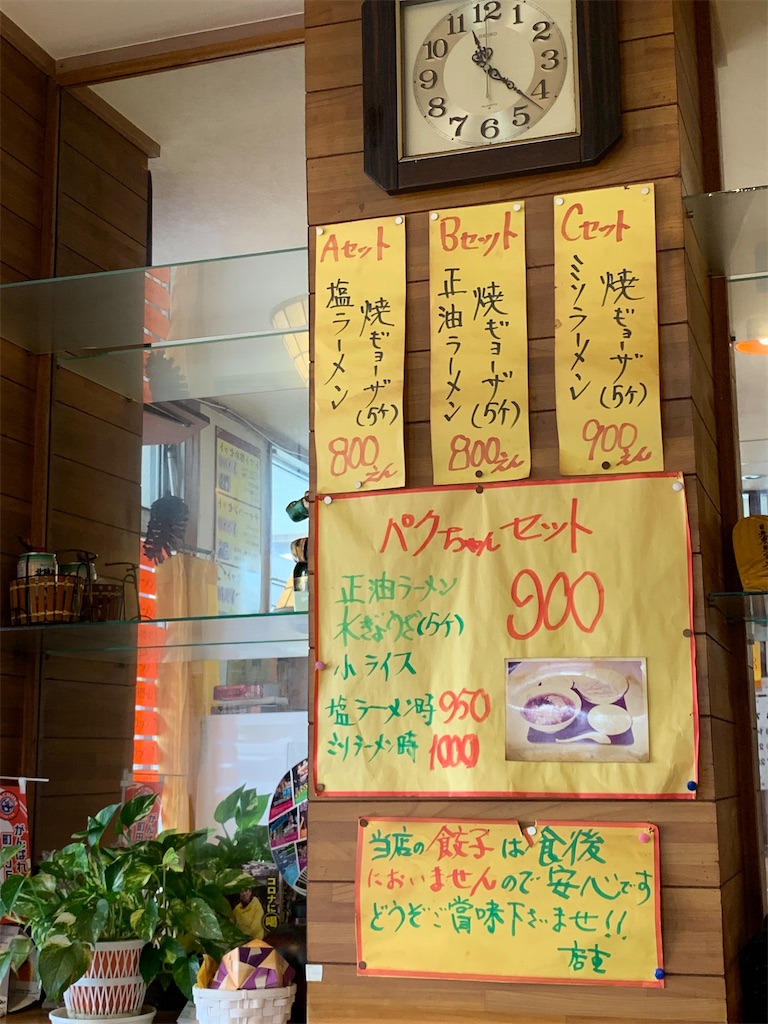 12
1
2
3
4
5
6
7
8
9
10
11
SEIKO
Aセット
焼ギョーザ(5ケ)
塩ラーメン
800えん
Bセット
焼ギョーザ(5ケ)
正油ラーメン
800えん
Cセット
焼ギョーザ(5ケ)
ミソラーメン
900えん
パクちゃんセット
正油ラーメン
水ぎょうざ(5ケ)
小ライス
900
塩ラーメン時950
ミソラーメン時1000
当店の餃子は食後
においませんので安心です
どうぞご賞味下さいませ!!
店主
がんばれ
コロナに喝